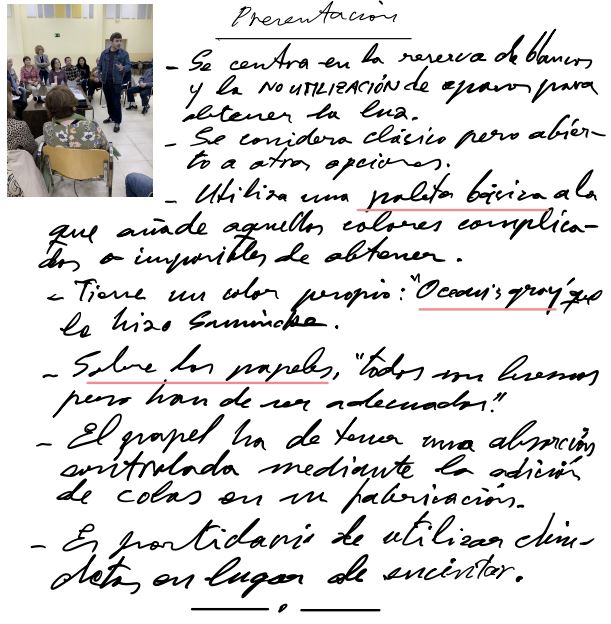 Presentación
- Se centra en la reserva de blancos
y la NO UTILIZACIÓN de opacos para
obtener la luz.
- Se considera clásico pero abier-
to a otras opciones.
- Utiliza una paleta básica a la
que añade aquellos colores complica-
dos o imposibles de obtener.
- Tiene un color propio: "Ocean's gray" que
lo hizo
- Sobre los papeles, "todos son buenos
pero han de ser adecuados."
- El papel ha de tener una absorción
controlada mediante la adición
de colas en su fabricación.
- Es partidario de utilizar chin-
chetas en lugar de encintar.